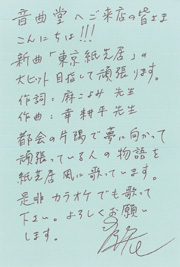 音曲堂へご来店の皆さま
こんにちは!!!
新曲「東京紙芝居」の
大ヒット目指して頑張ります。
作詞:麻こよみ先生
作曲:幸耕平先生
都会の片隅で夢に向かって
頑張っている人の物語を
紙芝居風に歌っています。
是非カラオケでも歌って
下さい。よろしくお願い
します。